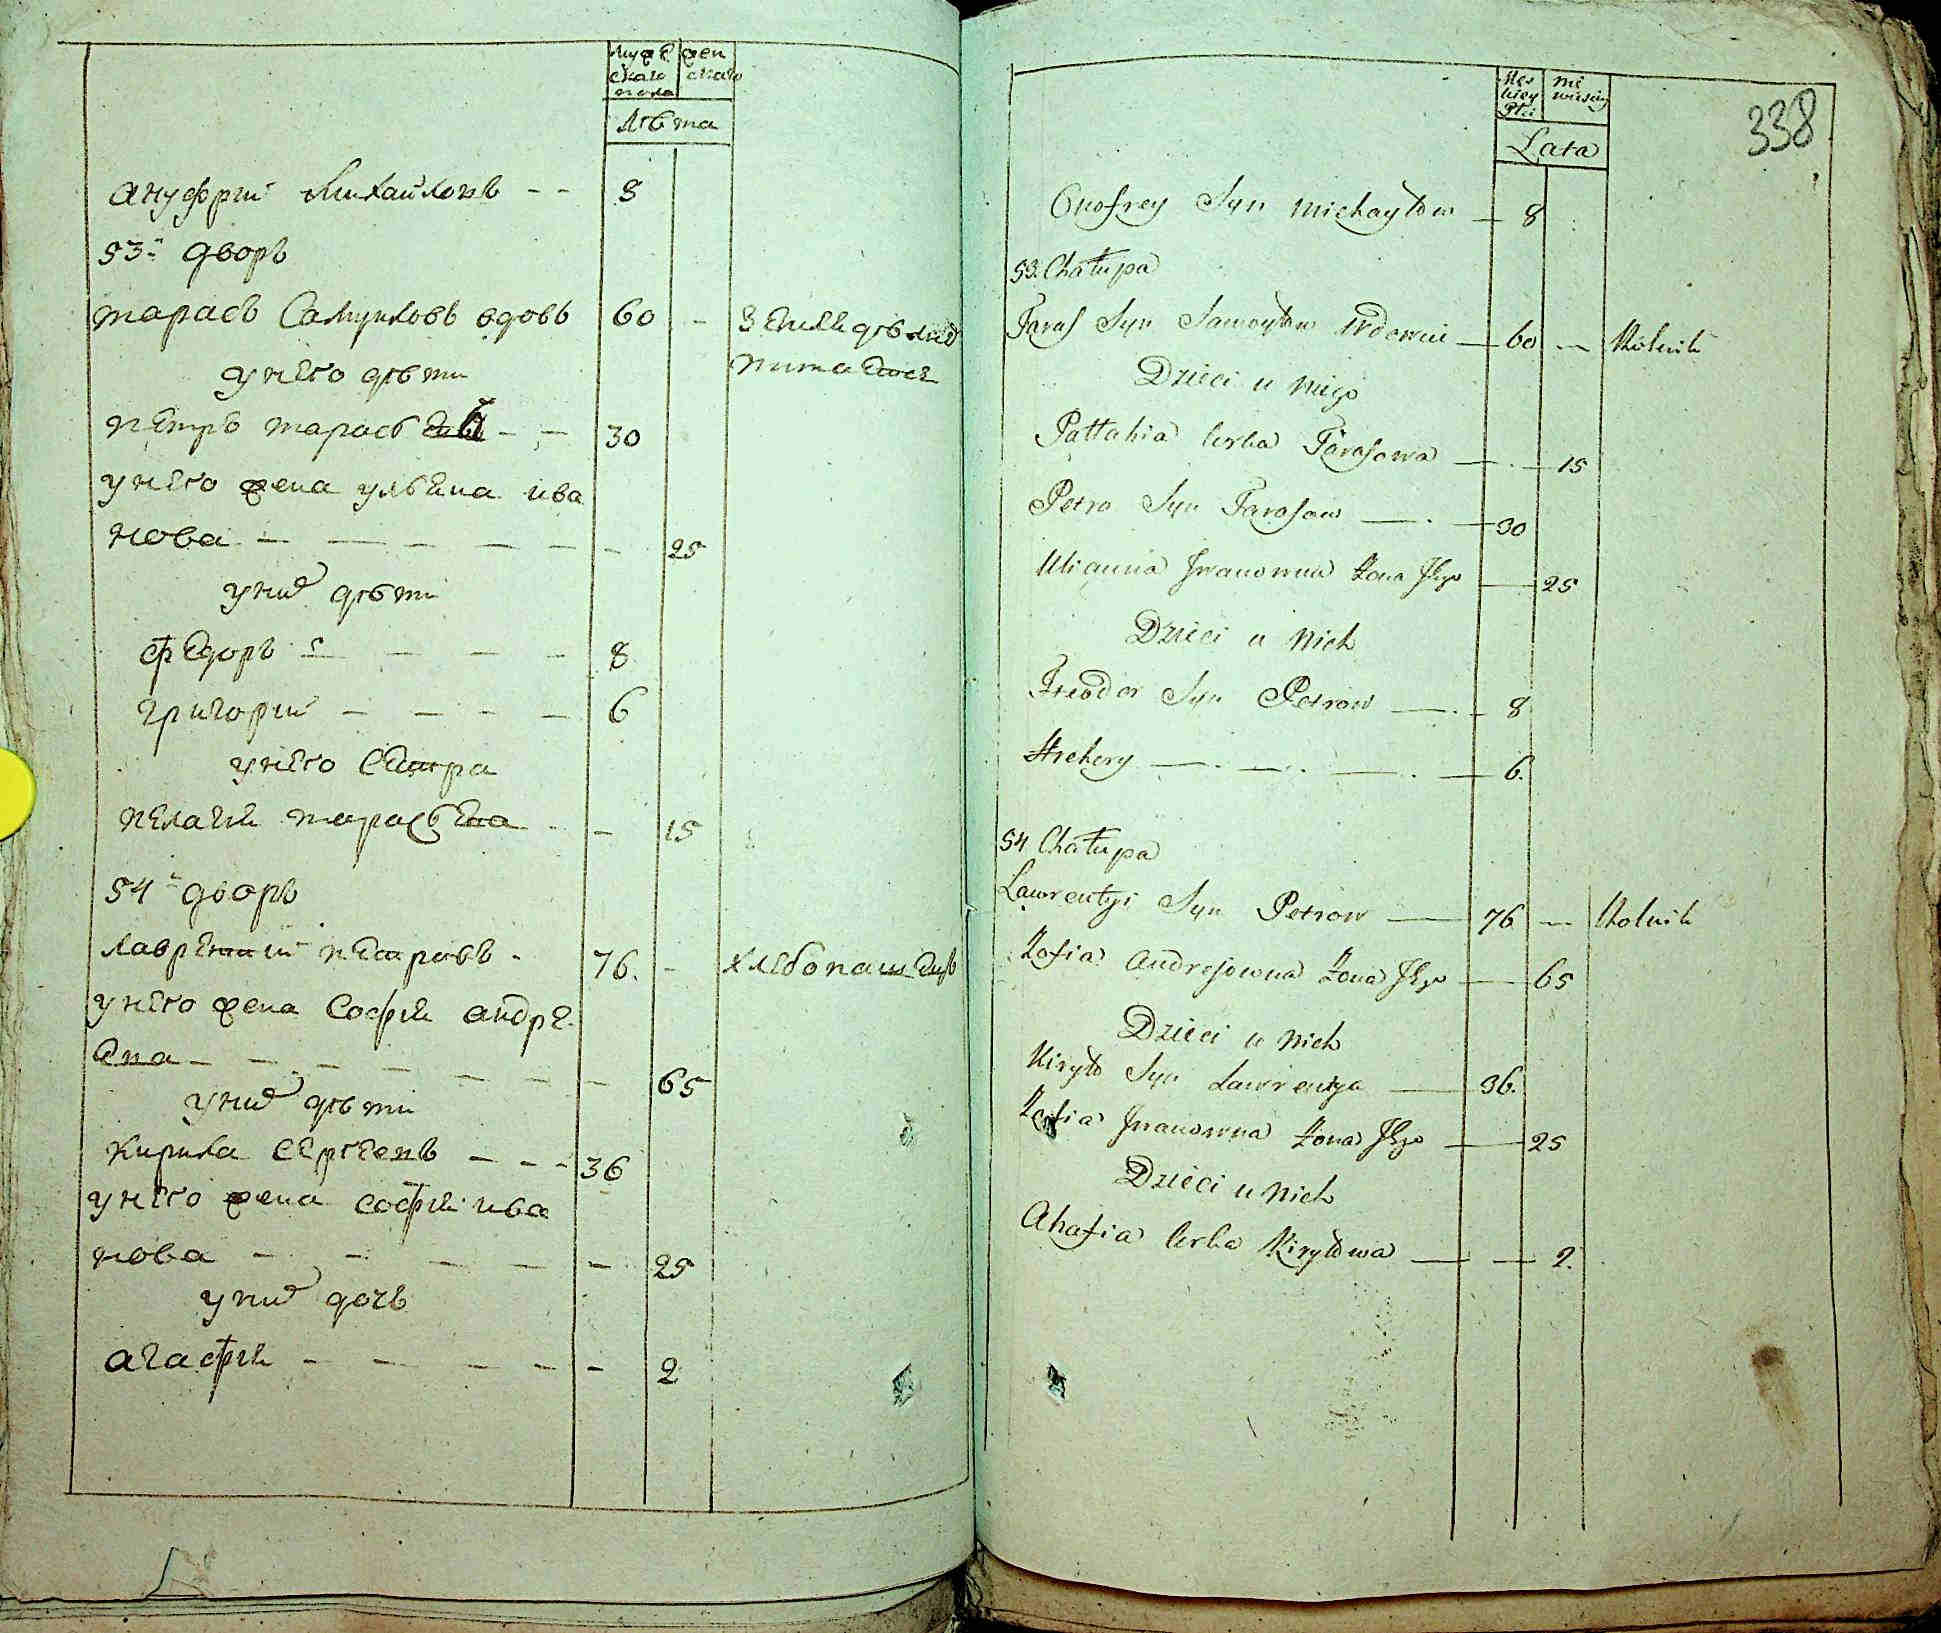 мужескаго пола
женскаго
лѣта
ануфрий Михайловъ 8
53й дворъ
тарасъ Самуиловъ вдовъ 60
землѣделие
питается
у него дѣти
петръ тарасъевъ 30
у него жена ульяна ива
нова 25
у них дѣти
Федоръ 8
григорий 6
у него сестра
пелагия тарасьева 15
54й дворъ
лаврентий петровъ 76
хлебопашецъ
у него жена Софія андре
ева 65
у них дѣти
кирила сергеевъ 36
у него жена софія ива
нова 25
у них дочь
агафия 2
338
Męskiey Płci
Niewieściey
Lata
Onofrey Syn Michayłow 8
53 Chałupa
Taras Syn Samoyłow Wdowiec 60 Rolnik
Dzieci u niego
Pałłahia Corka Tarasowa 15
Petro Syn Tarasow 30
Ulianna Jwanowna Żona Jego 25
Dzieci u Nich
Fteodor Syn Petrow 8
Hrehory 6.
54 Chałupa
Lawrentyi Syn Petrow 76 Rolnik
Zofia Andrejowna Żona Jego 65
Dzieci u Nich
Kiryło Syn Lawrentya 36.
Zofia Jwanowna Żona Jego 25
Dzieci u Nich
Ahafia Corka Kiryłowa 2.